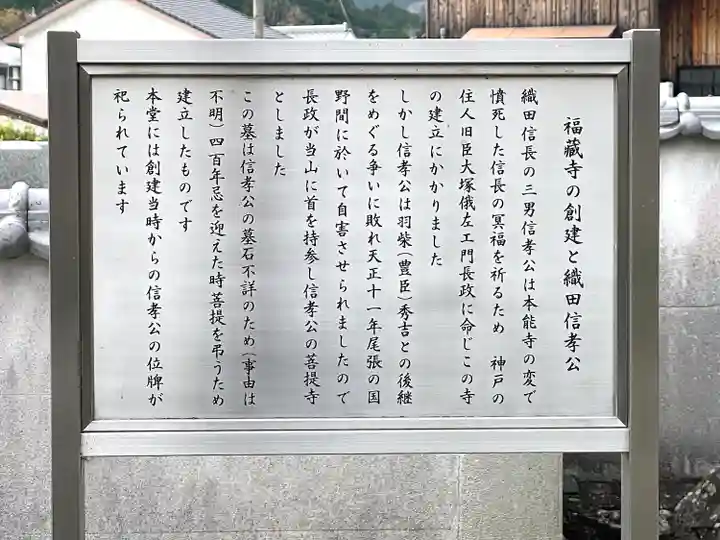 福藏寺の創建と織田信孝公
織田信長の三男信孝公は本能寺の変で
憤死した信長の冥福を祈るため 神戸の
住人旧臣大塚俄左エ門長政に命じこの寺
の建立にかかりました
しかし信孝公は羽柴(豊臣)秀吉との後継
をめぐる争いに敗れ天正十一年尾張の国
野間に於いて自害させられましたので
長政が当山に首を持参し信孝公の菩提寺
としました
この墓は信孝公の墓石不詳のため(事由は
不明)四百年忌を迎えた時菩提を弔うため
建立したものです
本堂には創建当時からの信孝公の位牌が
祀られています